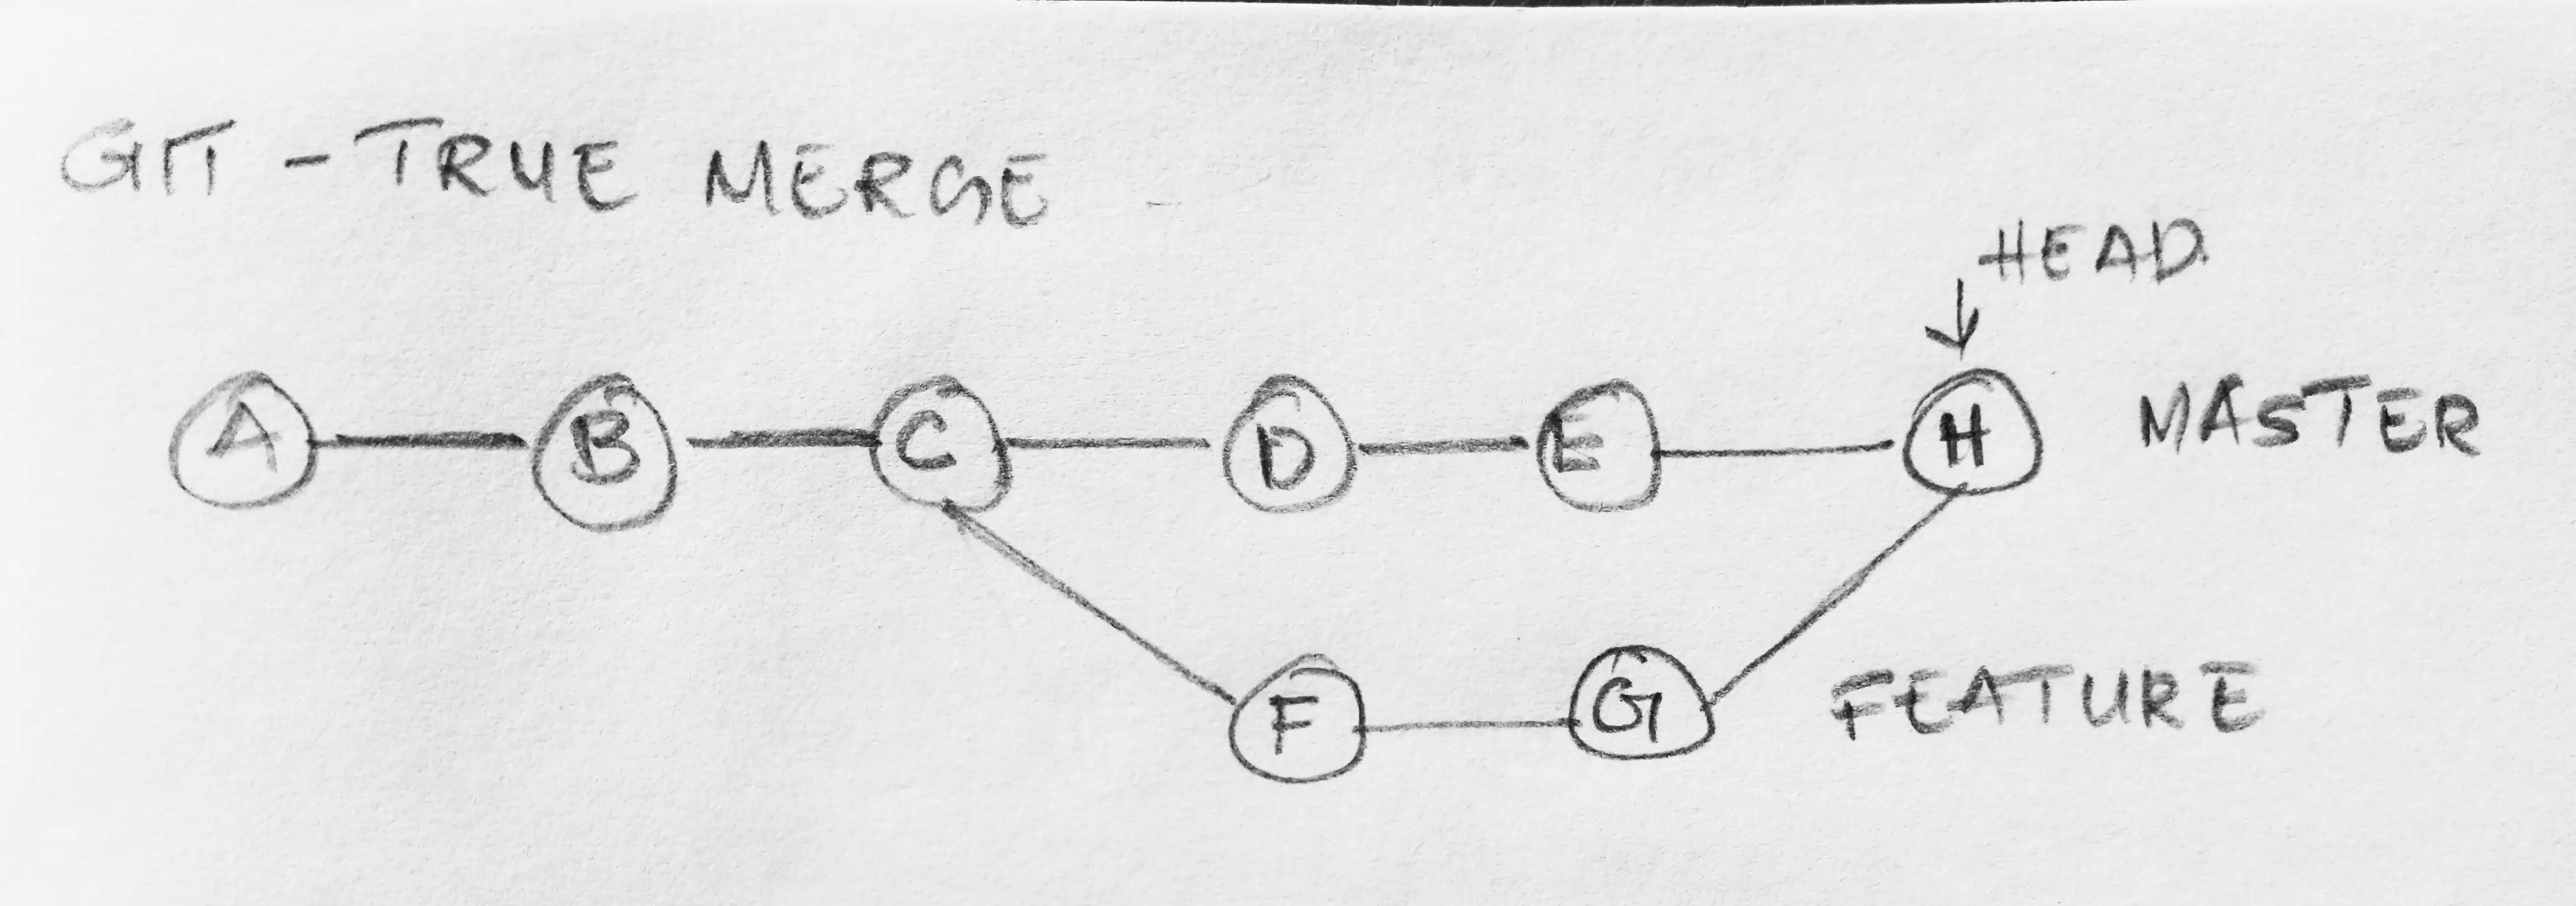 GIT - TRUE MERGE
HEAD
A B C D E H MASTER
F G FEATURE